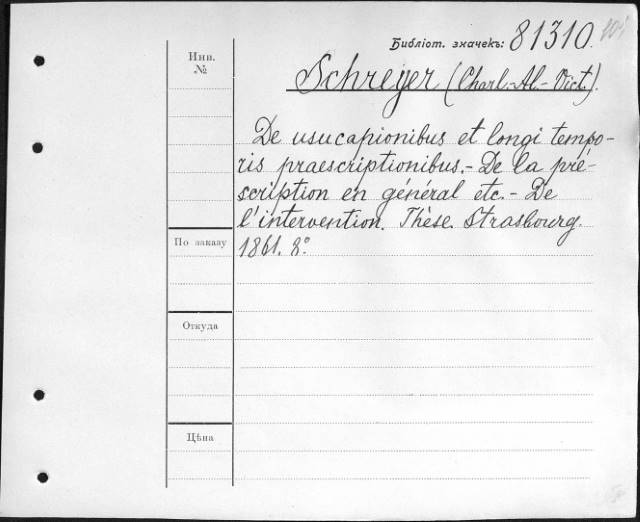 Библіот. значекъ: 81310.
Инв.
№
Schreyer (Charl.-Al.-Vict.).
De usucapionibus et longi tempo-
ris praescriptionibus.- De la pré-
scription en général etc.- De
l'intervention. Thèse. Strasbourg.
По заказу
1861. 8°.
Откуда
Цѣна